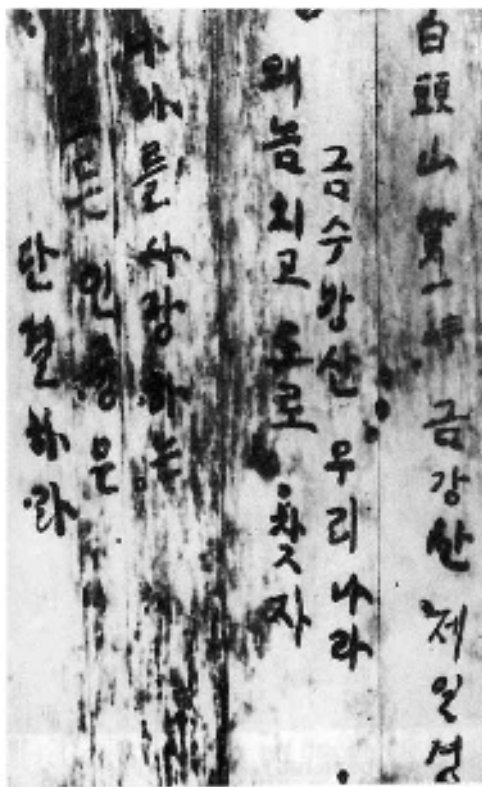 白頭山第一峰 금강산 제일경
금수강산 우리나라
왜놈치고 도로 찾자
나라를 사랑하는
인중은
단결하라